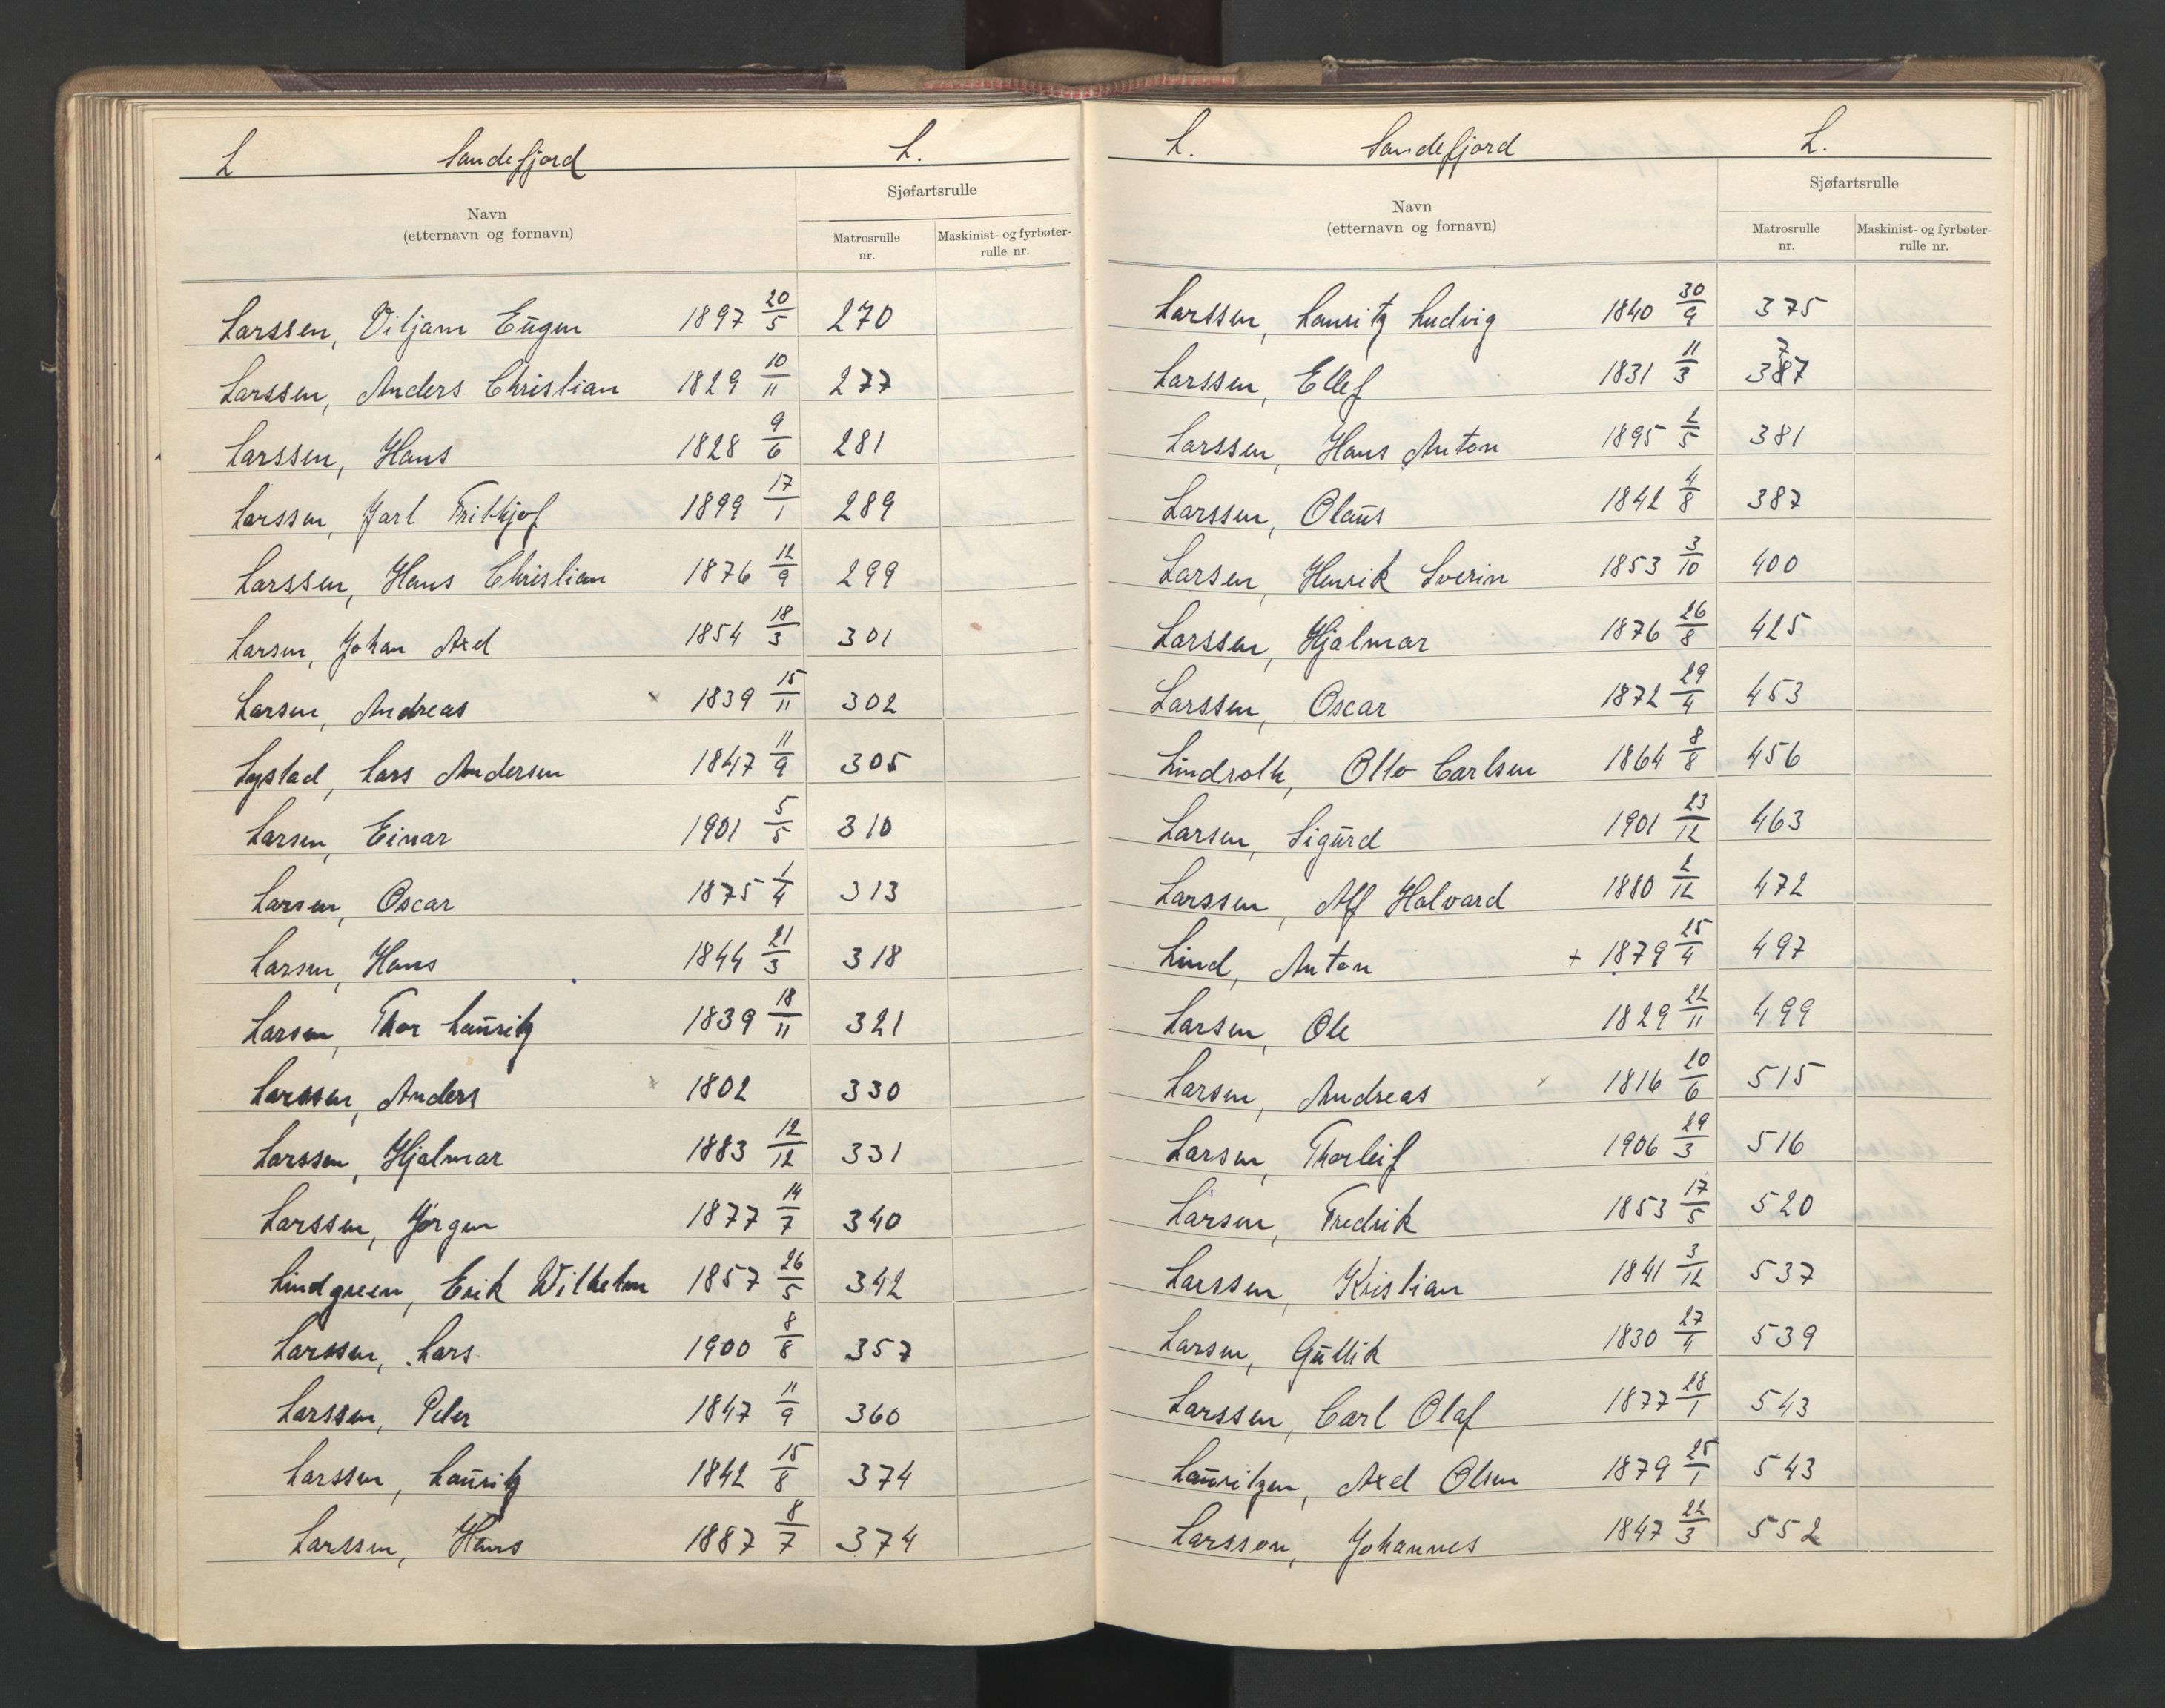 L Sandefjord L.
Navn
(etternavn og fornavn)
Sjøfartsrulle
Matrosrulle
nr.
Maskinist- og fyrbøter-
rulle nr.
Larssen, Viljam Eugen 1897 20/5 270
Larssen, Anders Christian 1829 10/11 277
Larssen, Hans 1828 9/6 281
Larssen, Jarl Frithjof 1899 17/1 289
Larssen, Hans Christian 1876 12/9 299
Larsen, Johan Axel 1854 18/3 301
Larsen, Andreas × 1839 15/11 302
Lystad, Lars Andersen 1847 11/9 305
Larsen, Einar 1901 5/5 310
Larsen, Oscar 1875 1/4 313
Larsen, Hans 1844 21/3 318
Larsen, Thor Lauritz 1839 18/11 321
Larssen, Anders × 1802 330
Larssen, Hjalmar 1883 12/12 331
Larssen, Jörgen 1877 14/7 340
Lindgreen, Erik Wilhelm 1857 26/5 342
Larssen, Lars 1900 8/8 357
Larssen, Peter 1847 11/9 360
Larssen, Lauritz 1842 15/8 374
Larssen, Hans 1887 8/7 374
L. Sandefjord L.
Navn
(etternavn og fornavn)
Sjøfartsrulle
Matrosrulle
nr.
Maskinist- og fyrbøter-
rulle nr.
Larssen, Lauritz Ludvig 1840 30/9 375
Larssen, Ellef 1831 11/3 387 7
Larssen, Hans Anton 1895 2/5 381
Larssen, Olaus 1842 4/8 387
Larsen, Henrik Sverin 1853 3/10 400
Larssen, Hjalmar 1876 26/8 425
Larssen, Oscar 1872 29/4 453
Lindroth, Otto Carlsen 1864 8/8 456
Larsen, Sigurd 1901 23/12 463
Larssen, Alf Halvard 1880 2/12 472
Lind, Anton + 1879 25/4 497
Larsen, Ole 1829 22/11 499
Larsen, Andreas × 1816 20/6 515
Larsen, Thorleif 1906 29/3 516
Larsen, Fredrik 1853 17/5 520
Larssen, Kristian 1841 3/12 537
Larsen, Gullik 1830 27/4 539
Larssen, Carl Olaf 1877 28/1 543
Lauritzen, Axel Olsen 1879 25/1 543
Larsson, Johannes 1847 22/3 552